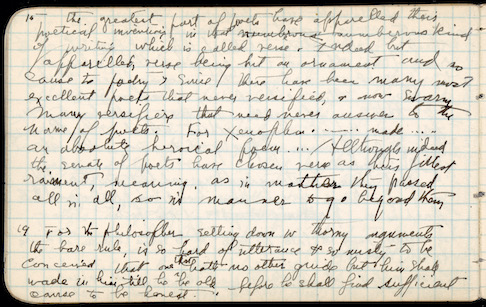 15 the greatest part of poets have apparelled their
poetical inventions in that numbrous kind
of writing which is called verse. Indeed but
apparelled, verse being but an ornament and no
cause to poetry & since there have been many most
excellent poets that never versified, & now swarm
many versifiers that need never answer to the
name of poets. For Xenophon ..... made .....
an absolute heroical poem .... Although indeed
the senate of poets have chosen verse as their fittest
raiment, meaning, as in matter they passed
all in all, so in manner to go beyond them
19 For the philosopher setting down w thorny arguments
the bare rule, is so hard of utterance & so misty to be
conceived that one that hath no other guide but him shall
wade in him till he be old before he shall find sufficient
cause to be honest.